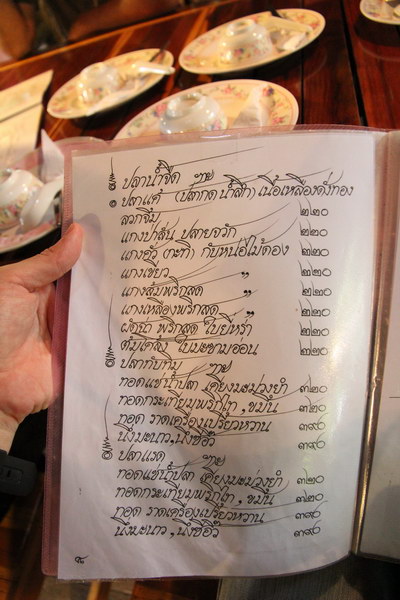 ปลาน้ำจืด
ปลาแค้ (ปลากดน้ำลึก) เนื้อเหลืองดั่งทอง
ลวกจิ้ม ๒๒๐
แกงป่าส้น ปลายจวัก ๒๒๐
แกงคั่ว (กะทิ) กับหน่อไม้ดอง ๒๒๐
แกงเขียว " ๒๒๐
แกงส้มพริกสด " ๒๒๐
แกงเหลืองพริกสด " ๒๒๐
ผัดฉ่า พริกสด ใบยี่หร่า ๒๒๐
ต้มโคล้ง ใบมะขามอ่อน ๒๒๐
ปลาทับทิม
ทอดแช่น้ำปลา เคียงมะม่วงยำ ๓๒๐
ทอดกระเทียมพริกไท, ขมิ้น ๓๒๐
ทอด ราดเครื่องเปรี้ยวหวาน ๓๙๐
นึ่งมะนาว, นึ่งซีอิ๊ว ๓๙๐
ปลาแรด
ทอดแช่น้ำปลา เคียงมะม่วงยำ ๓๒๐
ทอดกระเทียมพริกไท, ขมิ้น ๓๒๐
ทอด ราดเครื่องเปรี้ยวหวาน ๓๙๐
นึ่งมะนาว, นึ่งซีอิ๊ว ๓๙๐